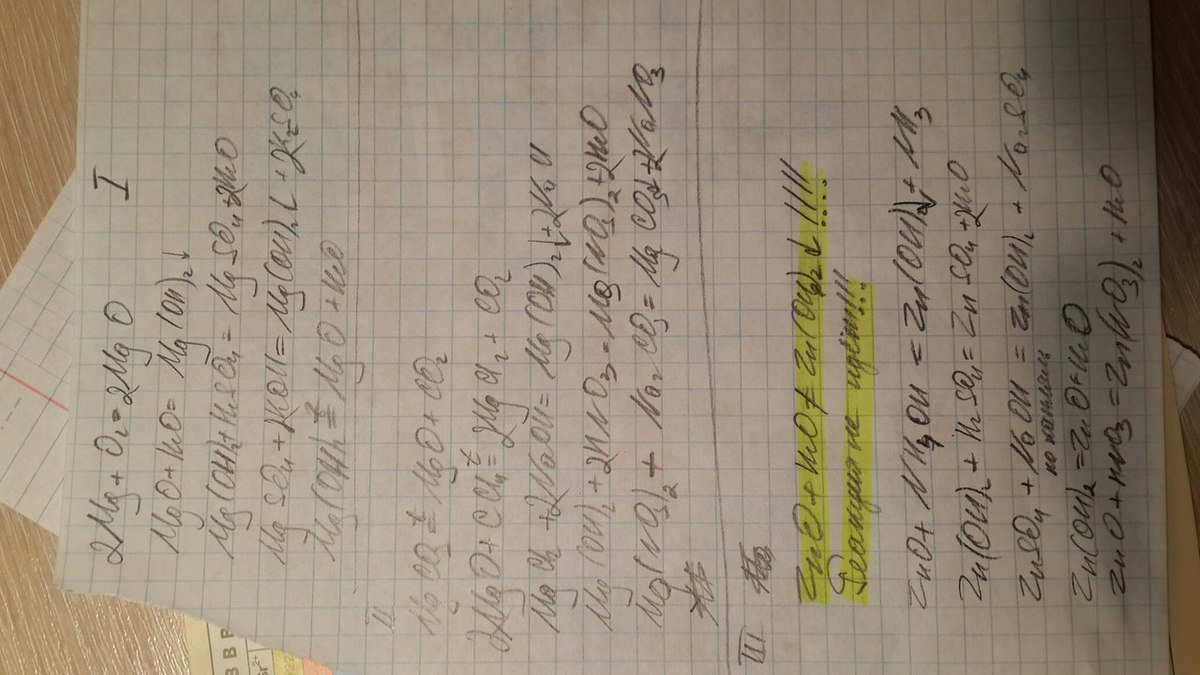 I
2Mg + O₂ = 2MgO
MgO + H₂O = Mg(OH)₂↓
Mg(OH)₂ + H₂SO₄ = MgSO₄ + 2H₂O
MgSO₄ + 2KOH = Mg(OH)₂↓ + 2K₂SO₄
Mg(OH)₂ =ᵗ MgO + H₂O
II
MgCO₃ =ᵗ MgO + CO₂
2MgO + CCl₄ =ᵗ 2MgCl₂ + CO₂
MgCl₂ + 2NaOH = Mg(OH)₂↓ + 2NaCl
Mg(OH)₂ + 2HNO₃ = Mg(NO₃)₂ + 2H₂O
Mg(NO₃)₂ + Na₂CO₃ = MgCO₃↓ + 2NaNO₃
III
ZnO + H₂O ≠ Zn(OH)₂↓ !!!!!
Реакция не идёт!!!
ZnO + NH₄OH = Zn(OH)₂↓ + NH₃
Zn(OH)₂ + H₂SO₄ = ZnSO₄ + 2H₂O
ZnSO₄ + NaOH = Zn(OH)₂ + Na₂SO₄
по каплям
Zn(OH)₂ = ZnO + H₂O
ZnO + HNO₃ = Zn(NO₃)₂ + H₂O